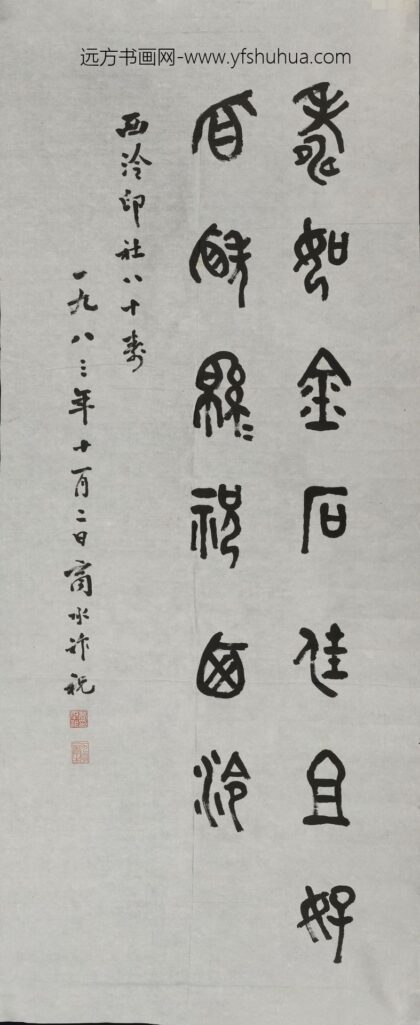 远方书画网-www.yfshuhua.com
壽如金石佳且好
緜緜祝西泠
西泠印社八十寿
一九八三年十一月二日商承祚祝